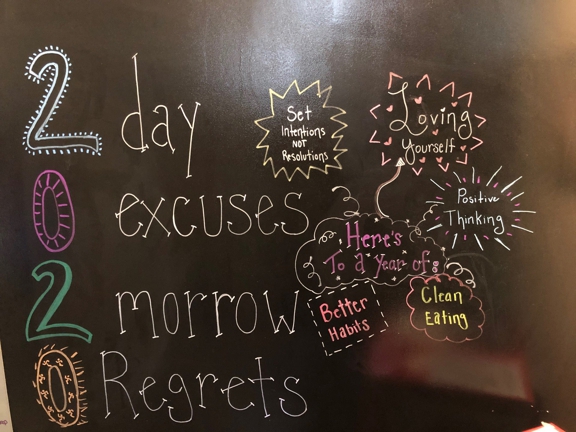 2 day
0 excuses
2 morrow
0 Regrets
Set
Intentions
NOT
Resolutions
Loving
Yourself
Positive
Thinking
Here's
To a Year of:
Better
Habits
Clean
Eating